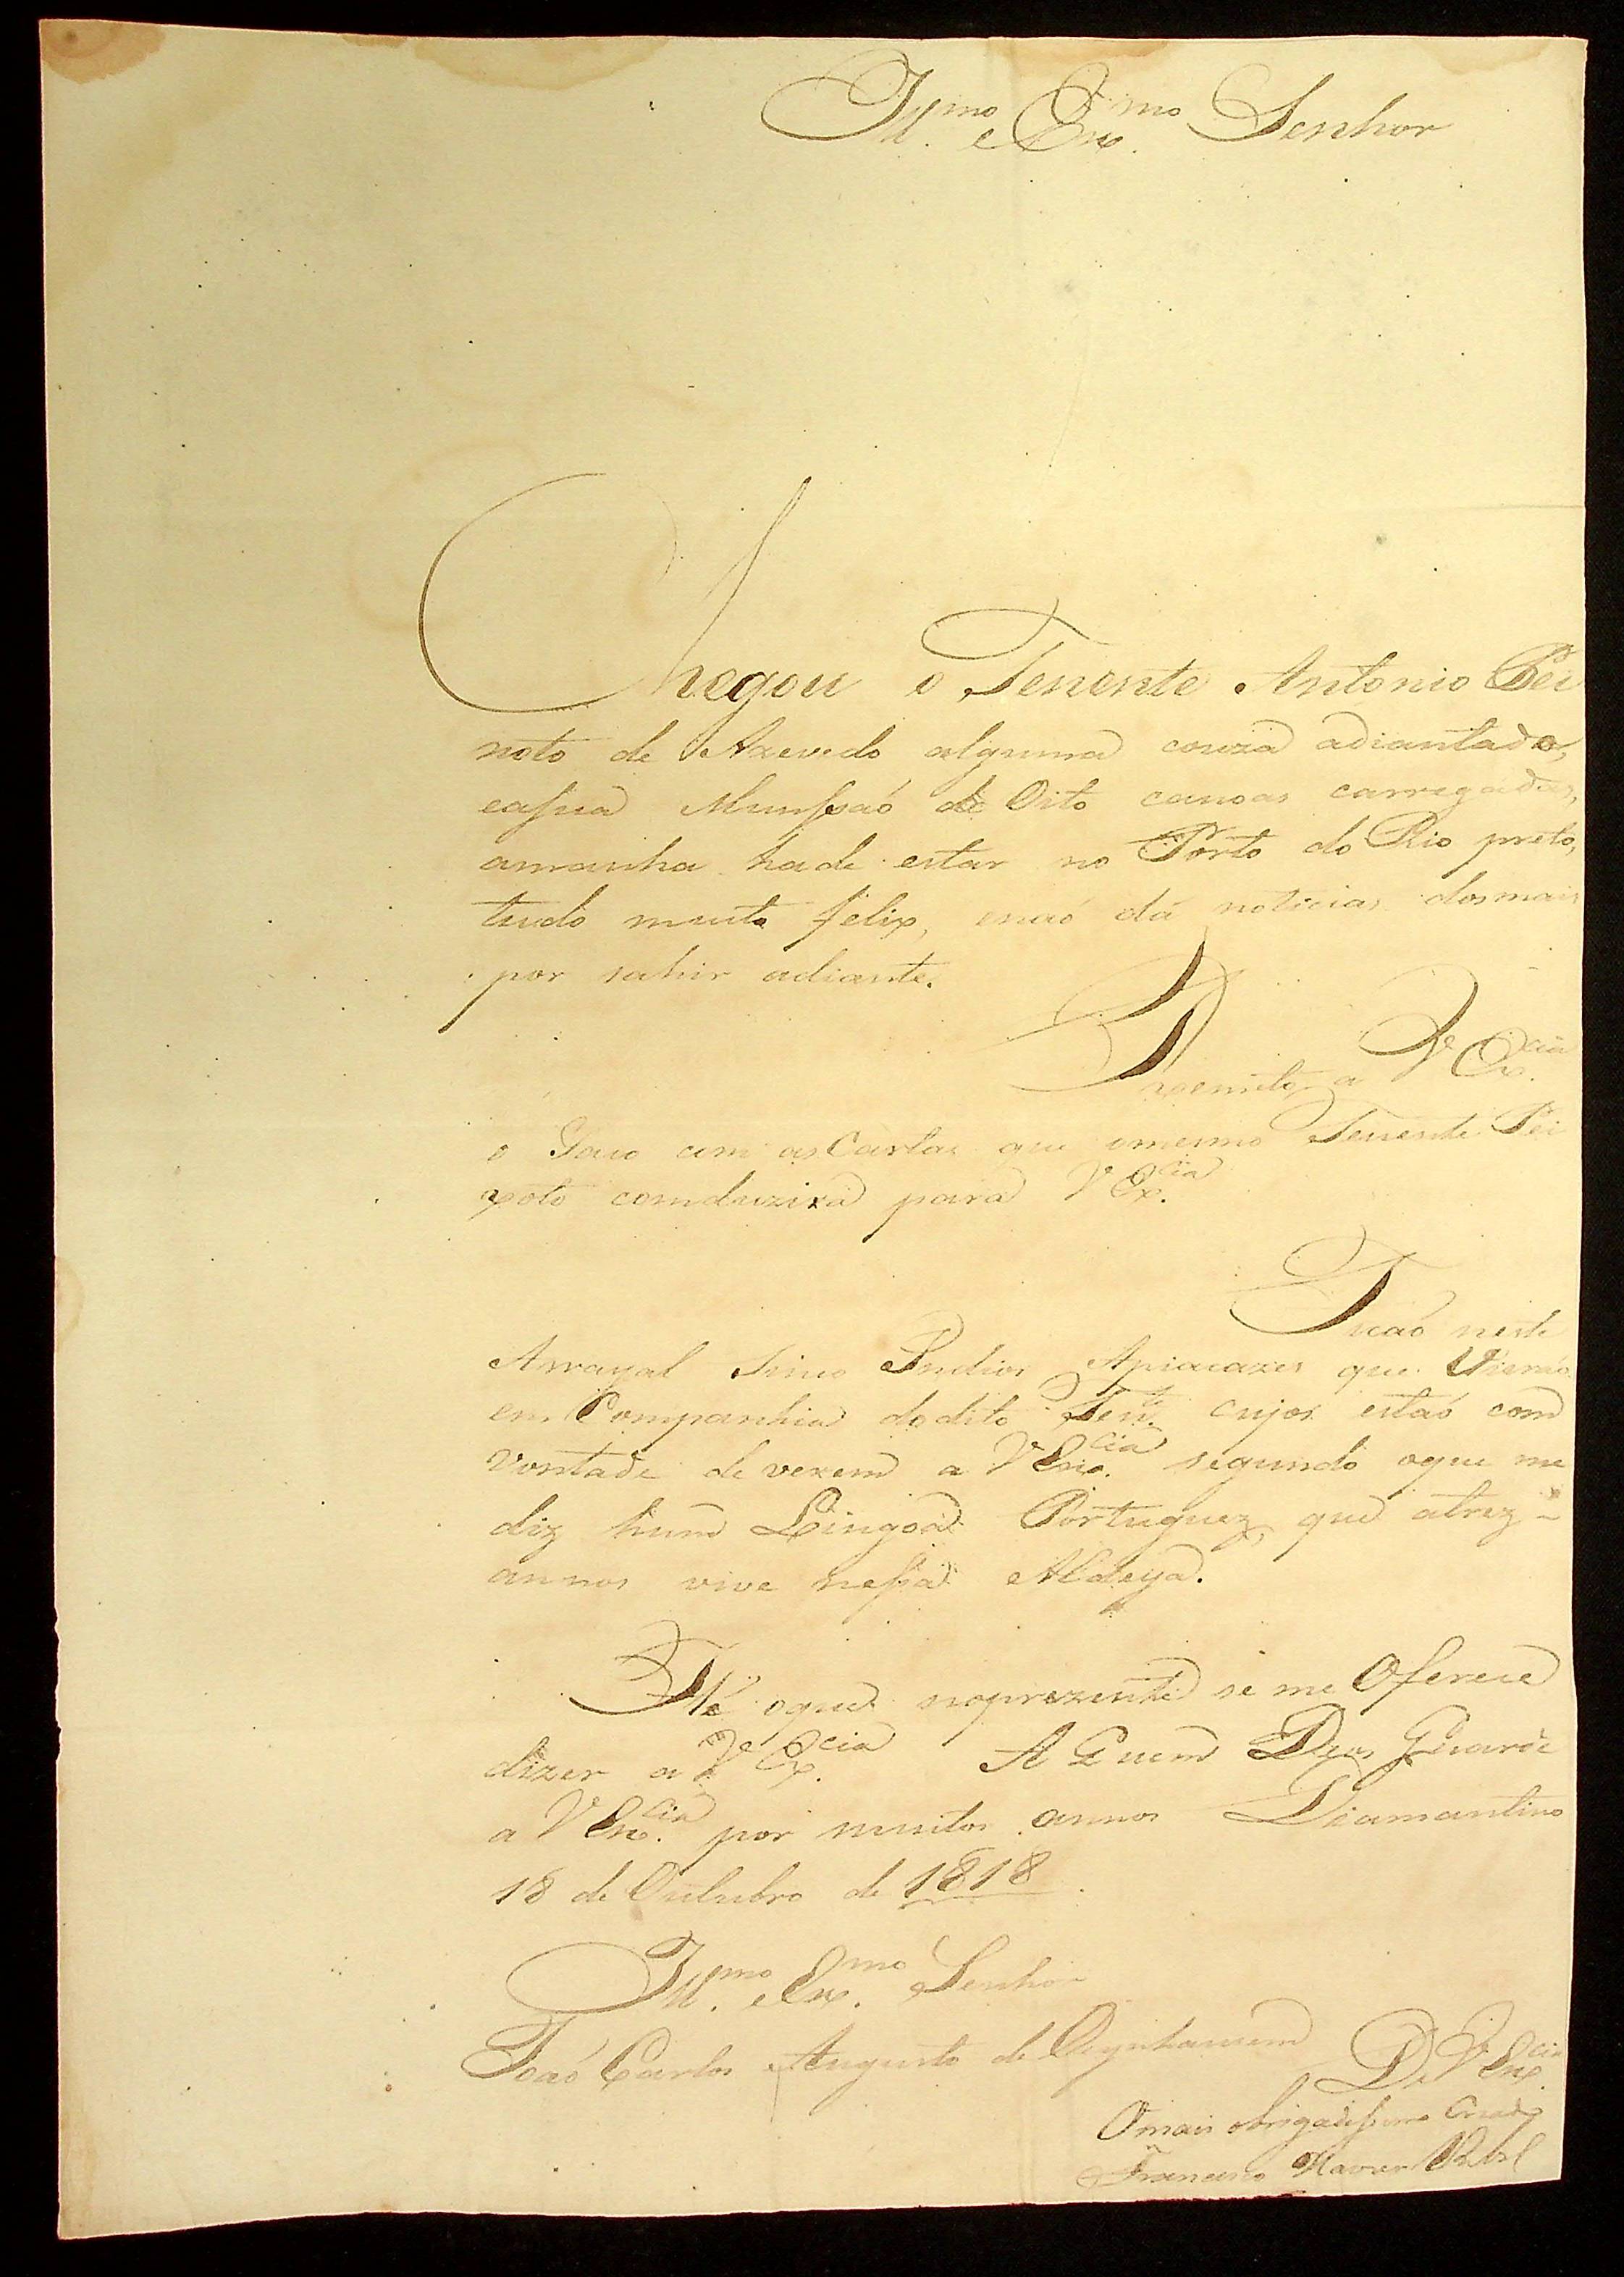 Ill.mo e Ex.mo Senhor
Chegou o Tenente Antonio Pei
xoto de Azevedo alguma couza adiantado,
easua Munssaó de Oito canoas carregadas,
amanha hade estar no Porto do Rio preto,
tudo muito felix, enaó dá noticias dosmais
por sahir adiante.
Remito a V Ex.cia
o Saco com as Cartas que omesmo Tenente Pei
xoto comduzira para V Ex.cia
Ficaó neste
Arrayal Sinco Indios Apiacazes que Vieraó
em Companhia dodito Ten.te cujos estaó com
Vontade de verem a V Ex.cia segundo oque me
diz hum Lingoa Portuguez, que atrez
annos vive nessa Aldeya.
Hé oque noprezente se me Oferece
dizer a V Ex.cia A Quem Deos Guarde
a V Ex.cia por muitos annos Diamantino
18 de Outubro de 1818
Ill.mo e Ex.mo Senhor
Joaó Carlos Augusto de Oeynhausem
De V Ex.cia
Omais obrigadissimo Criado
Francisco Xavier